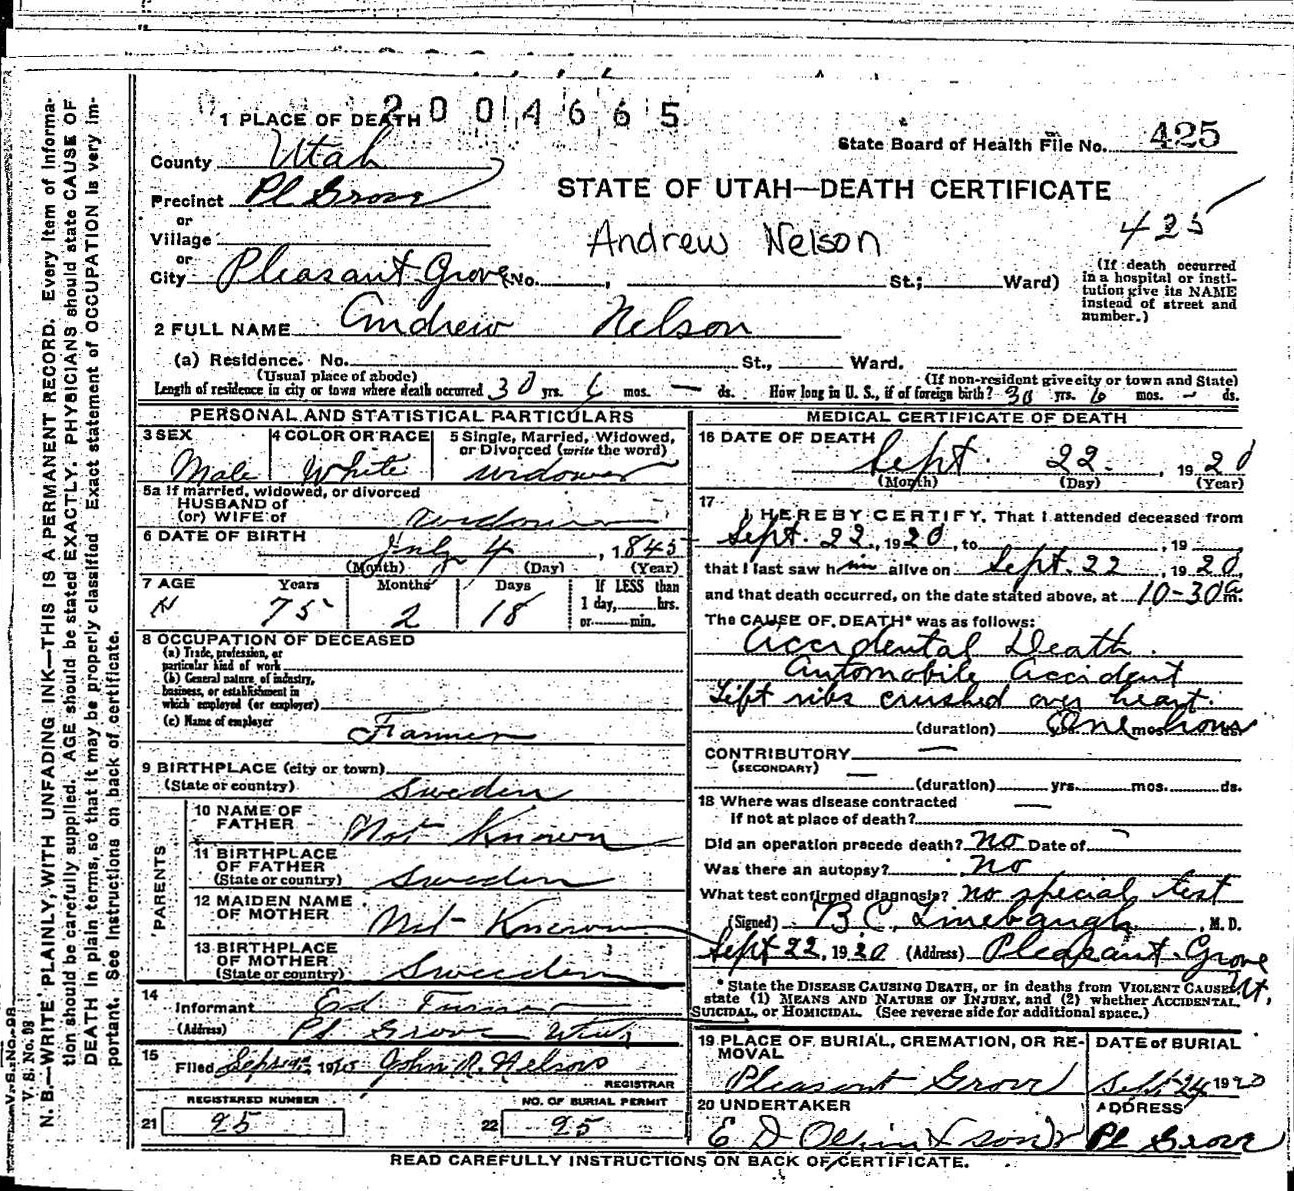 2004665
1 PLACE OF DEATH
State Board of Health File No. 425
County Utah
STATE OF UTAH—DEATH CERTIFICATE
Precinct Pl Grove
or
Village
Andrew Nelson
425
or
City Pleasant Grove (No. , St.; Ward)
(If death occurred
in a hospital or insti-
tution give its NAME
instead of street and
number.)
2 FULL NAME Andrew Nelson
(a) Residence. No. St., Ward.
(Usual place of abode) (If non-resident give city or town and State)
Length of residence in city or town where death occurred 30 yrs. 6 mos. — ds. How long in U. S., if of foreign birth? 30 yrs. 6 mos. - ds.
PERSONAL AND STATISTICAL PARTICULARS
3 SEX
Male
4 COLOR OR RACE
White
5 Single, Married, Widowed,
or Divorced (write the word)
widower
5a If married, widowed, or divorced
HUSBAND of
(or) WIFE of
widower
6 DATE OF BIRTH
July 4, 1845
(Month) (Day) (Year)
7 AGE Years Months Days
75 2 18
If LESS than
1 day, hrs.
or min.
8 OCCUPATION OF DECEASED
(a) Trade, profession, or
particular kind of work
(b) General nature of industry,
business, or establishment in
which employed (or employer)
(c) Name of employer
Farmer
9 BIRTHPLACE (city or town)
(State or country) Sweden
PARENTS
10 NAME OF
FATHER Not Known
11 BIRTHPLACE
OF FATHER
(State or country) Sweden
12 MAIDEN NAME
OF MOTHER Not Known
13 BIRTHPLACE
OF MOTHER
(State or country) Sweden
14
Informant Ed
(Address) Pl Grove Utah
15
Filed John R. Nelson
REGISTRAR
REGISTERED NUMBER
21 95
NO. OF BURIAL PERMIT
22 95
MEDICAL CERTIFICATE OF DEATH
16 DATE OF DEATH
Sept. 22. , 1920
(Month) (Day) (Year)
17
I HEREBY CERTIFY, That I attended deceased from
Sept. 22, 1920, to , 19
that I last saw him alive on Sept. 22, 1920,
and that death occurred, on the date stated above, at 10-30a m.
The CAUSE OF DEATH* was as follows:
Accidental Death.
Automobile Accident
Left ribs crushed over heart.
(duration) One mos. hour ds.
CONTRIBUTORY —
(SECONDARY) —
(duration) yrs. mos. ds.
18 Where was disease contracted
if not at place of death? —
Did an operation precede death? no Date of —
Was there an autopsy? no
What test confirmed diagnosis? no special test
(Signed) B. C. Linebaugh, M. D.
Sept 22, 1920 (Address) Pleasant Grove
Ut.
* State the DISEASE CAUSING DEATH, or in deaths from VIOLENT CAUSES,
state (1) MEANS AND NATURE OF INJURY, and (2) whether ACCIDENTAL,
SUICIDAL, or HOMICIDAL. (See reverse side for additional space.)
19 PLACE OF BURIAL, CREMATION, OR RE-
MOVAL
Pleasant Grove
DATE of BURIAL
Sept. 24 1920
20 UNDERTAKER
E D Olpin & sons
ADDRESS
Pl Grove
READ CAREFULLY INSTRUCTIONS ON BACK OF CERTIFICATE.
V. S. No. 98
N. B.—WRITE PLAINLY, WITH UNFADING INK—THIS IS A PERMANENT RECORD. Every item of informa-
tion should be carefully supplied. AGE should be stated EXACTLY. PHYSICIANS should state CAUSE OF
DEATH in plain terms, so that it may be properly classified. Exact statement of OCCUPATION is very im-
portant. See instructions on back of certificate.